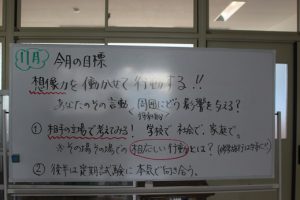 11月 今月の目標
想像力を働かせて行動する!!
あなたのその言動、周囲にどう影響を与える?
① 相手の立場で考えてみる! 学校で 社会で、家庭で。
※その場その場での相応しい行動とは?
② 後半は定期試験に本気で向き合う。